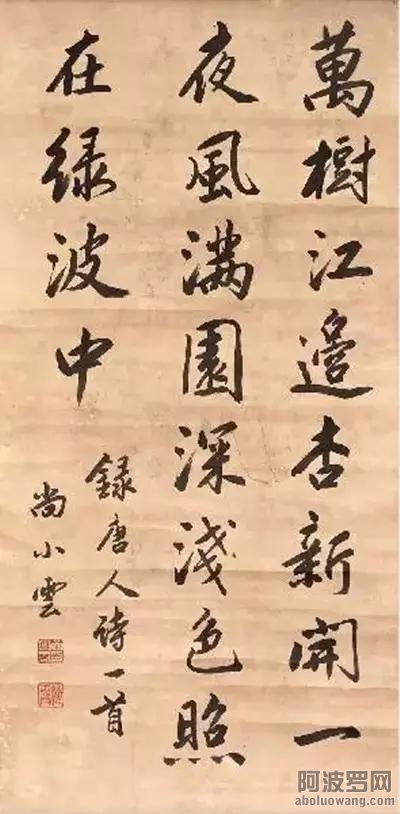 萬樹江邊杏新開一
夜風滿園深淺色照
在緑波中
録唐人詩一首
尚小雲
阿波罗网
aboluowang.com